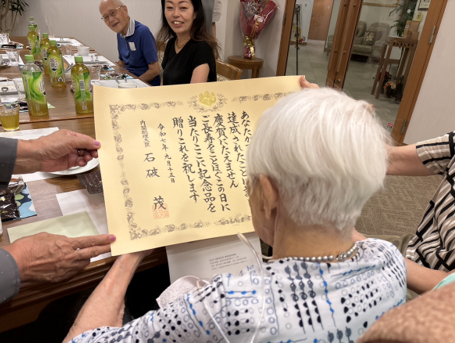 あなたが
達成されたことは
慶賀にたえません
ご長寿をことほぐこの日に
当たりここに記念品を
贈りこれを祝します
令和七年九月十五日
内閣総理大臣
石破 茂